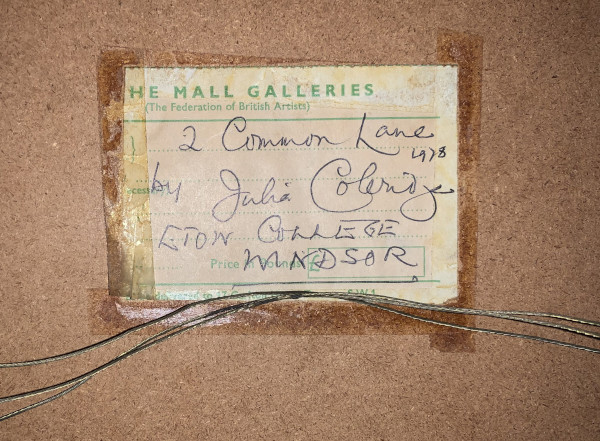 HE MALL GALLERIES
(The Federation of British Artists)
2 Common Lane
1978
by Julia Coleridge
ETON COLLEGE
Price in Pounds £
WINDSOR.
S.W.1